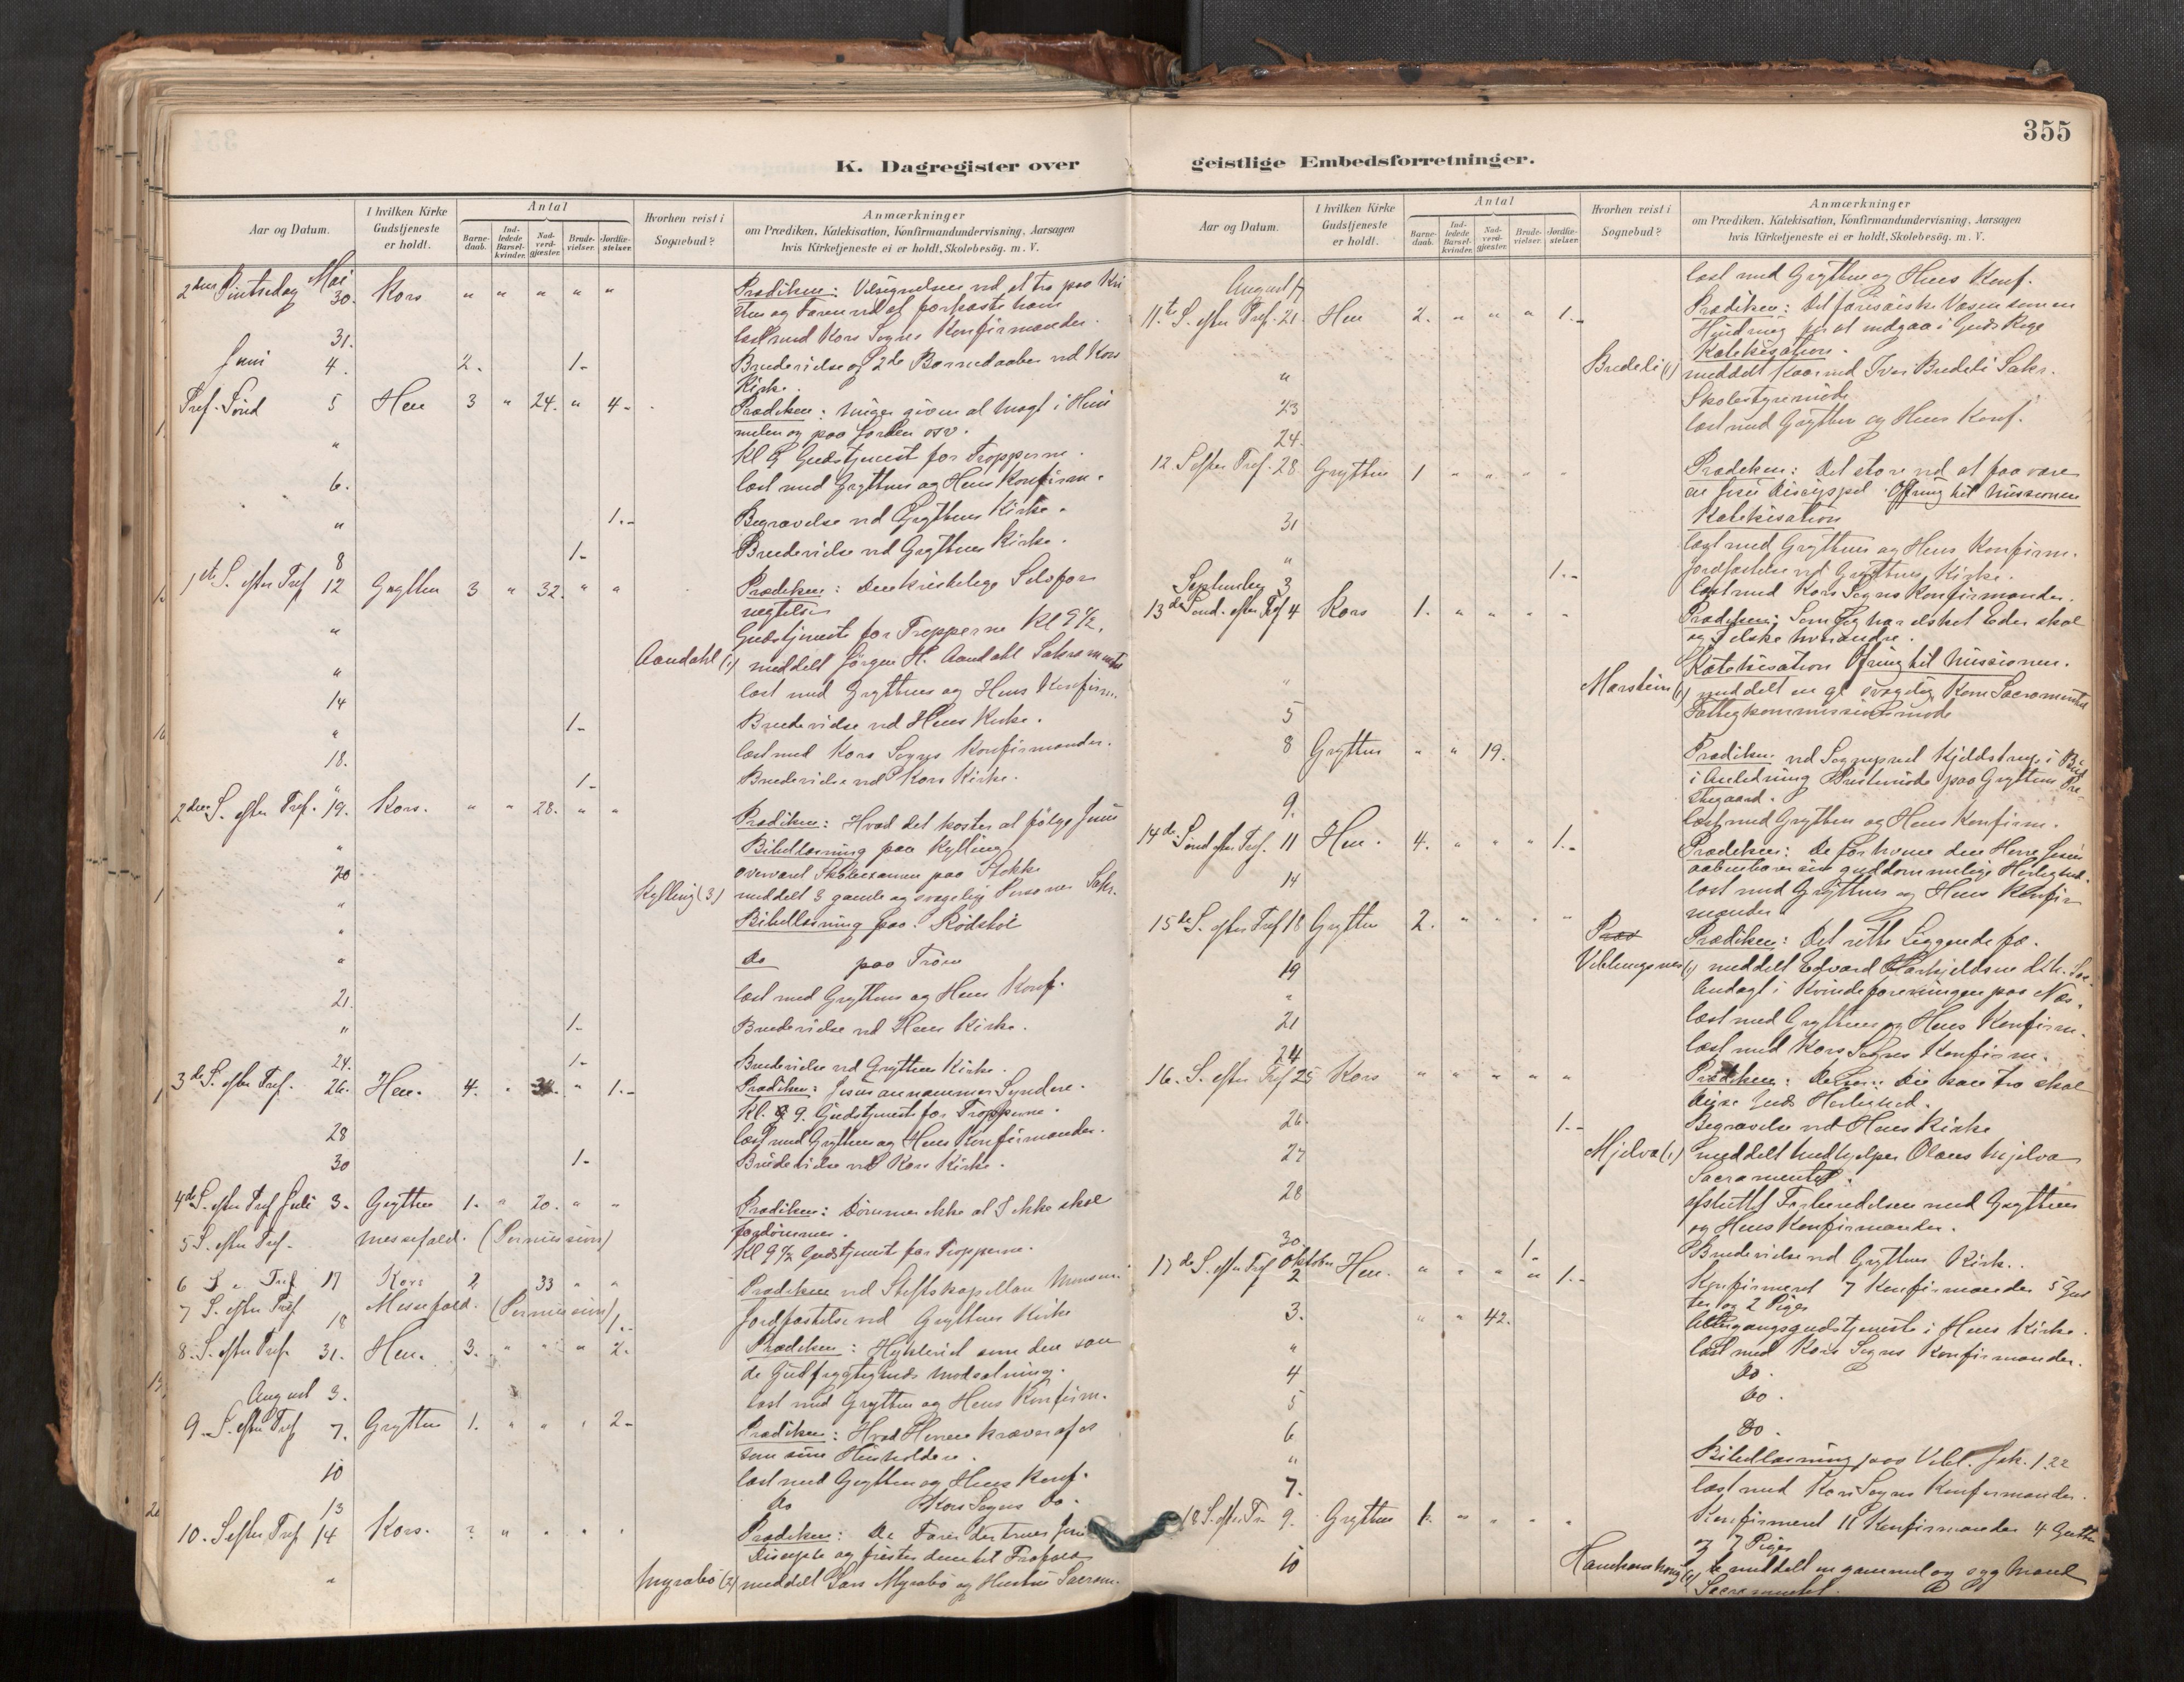 355
K. Dagregister over geistlige Embedsforretninger.
Aar og Datum.
I hvilken Kirke Gudstjeneste er holdt.
Antal
Barnedaab.
Indledede Barselkvinder.
Nadverdgjæster.
Brudevielser.
Jordfæstelser.
Hvorhen reist i Sognebud?
Anmærkninger
om Prædiken, Katekisation, Konfirmandundervisning, Aarsagen
hvis Kirketjeneste ei er holdt, Skolebesög. m. V.
2den Pintsedag Mai 30. Kors " " " " " Prædiken: Velsignelsen ved at tro paa Kri
stus og Faren ved at forkaste ham
31. læst med Kors Sogns Konfirmander.
Juni 4. 2. 1- Brudevielse og 2de Barnedaaber ved Kors
Kirke.
Tref. Sönd 5 Hen 3 " 24. " 4- Prædiken: Mig er given al Magt i Him
melen og paa Jorden osv.
" Kl 9 Gudstjenest for Tropperne.
6. læst med Gryttens og Hens Konfirm.
" 1.- Begravelse ved Gryttens Kirke.
8 1- Brudevielse ved Gryttens Kirke.
1ste S. efter Tref 12 Grytten 3 " 32. " " Prædiken: Den kristelige Selvfor
nægtelse
" Gudstjeneste for Tropperne Kl 9½.
" Aandahl (1) meddelt Jörgen H. Aandahl Sakramentet
14 læst med Gryttens og Hens Konfirm.
" 1- Brudevielse ved Hens Kirke.
18. læst med Kors Sogns Konfirmander.
" 1- Brudevielse ved Kors Kirke.
2den S. efter Tref. 19. Kors. " " 28. " " Prædiken: Hvad det koster at fölge Jesus
" Bibellæsning paa Kylling
20 overværet Skoleexamen paa Stokke
" Kylling (3) meddelt 3 gamle og svagelige Personer Sakr.
" Bibellæsning paa Rödstöl
" Do paa Tröen
21. læst med Gryttens og Hens Konf.
" 1- Brudevielse ved Hens Kirke.
24. 1- Brudevielse ved Gryttens Kirke.
3de S. efter Tref. 26. Hen. 4. " " 1.- Prædiken: Jesus annammer Syndere.
Kl. 9 Gudstjenest for Tropperne.
28 læst med Gryttens og Hens Konfirmander.
30 1- Brudevielse ved Kors Kirke.
4de S. efter Tref Juli 3. Grytten 1. " 20. " " Prædiken: Dömmer ikke at I ikke skal
fordömmes.
5 S. efter Tref. Messefald. (Permission) Kl 9½ Gudstjenest for Tropperne.
6 S e. Tref 17 Kors 2 33 " " Prædiken ved Stiftskapellan
7 S. efter Tref 18 Messefald. (Permission) 1.- Jordfæstelse ved Gryttens Kirke
8. S. efter Tref. 31. Hen. 3. " " " 2. Prædiken: Hykleriet som den san
de Gudfrygtigheds Modsætning.
August 3. læst med Grytten og Hens Konfirm.
9. S. efter Tref 7. Grytten 1. " " " 2- Prædiken: Hvad Herren kræver af os
som sine Husholdere.
10 læst med Grytten og Hens Konf.
13 Do Kors Sogns Do.
10. S efter Tref 14 Kors. " " " " Prædiken: De Farer der truer Jesu
Disciple og frister dem til Frafald
" Myrabö (2) meddelt Lars Myrabö og Hustru Sacram.
Aar og Datum.
I hvilken Kirke Gudstjeneste er holdt.
Antal
Barnedaab.
Indledede Barselkvinder.
Nadverdgjæster.
Brudevielser.
Jordfæstelser.
Hvorhen reist i Sognebud?
Anmærkninger
om Prædiken, Katekisation, Konfirmandundervisning, Aarsagen
hvis Kirketjeneste ei er holdt, Skolebesög. m. V.
August 17 læst med Grytten og Hens Konf.
11te S. efter Tref. 21. Hen 2. " " " 1.- Prædiken: Det farisæiske Væsen som en
Hindring for at indgaa i Guds Rige
Katekisation.
" Bredeli (1) meddelt Iver Bredeli Sakr.
23 Skolestyremöde
24. læst med Grytten og Hens Konf.
12. S efter Tref. 28 Grytten 1 " " " " Prædiken: Det store ved at faa være
en Jesu Discippel. Ofring til Missionen
Katekisation
31 læst med Gryttens og Hens Konfirm.
" 1.- Jordfæstelse ved Gryttens Kirke.
September 3 læst med Kors Sogns Konfirmander.
13de Sönd. efter Tref 4 Kors 1. " " " " Prædiken: Som jeg har elsket Eder skal
og I elske hverandre.
Katekisation Ofring til Missionen.
" Marstein (1) meddelt en gl svagelig Kone Sacramentet
5 Fattigkommissionsmöde
8 Grytten " " 19. Prædiken ved Sogneprest Kjeldstrup i Bud
i Anledning Prestemöde paa Gryttens Pre-
stegaard.
9. læst med Grytten og Hens Konfirm.
14de Sönd efter Tref. 11 Hen. 4. " " " 1.- Prædiken: De for hvem den Herre Jesus
aabenbarer sin guddommelige Herlighed.
14 læst med Gryttens og Hens Konfir
mander.
15de S. efter Tref 18 Grytten 2. " " " " Prædiken: Det rette Liggendefæ.
19 Veblungsnes (1) meddelt Edvard
" Andagt i Kvindeforeningen paa Næs.
21 læst med Gryttens og Hens Konfirm.
24 læst med Kors Sogns Konfirm.
16. S. efter Tref 25 Kors " " " " " Prædiken: Den som kan tro skal
se Guds Herlighed.
26. 1.- Begravelse ved Hens Kirke
27 Mjelva (1) meddelt Medhjelper Olaus Mjelva
Sacramentet.
28 afsluttet Forberedelsen med Gryttens
og Hens Konfirmander.
30. 1- Brudevielse ved Gryttens Kirk.
17de S. efter Tref Oktober 2 Hen. " " " " 1.- Konfirmeret 7 Konfirmander 5 Gut
ter og 2 Piger
3. " " 42. Altergangsgudstjeneste i Hens Kirke.
" læst med Kors Sogns Konfirmander.
4 Do.
5 Do.
6 Do.
" Bibellæsning paa Vebl. Jak. 1,22
7. læst med Kors Sogns Konfirmander.
18 S. efter Tr 9. Grytten 1. " " " " Konfirmeret 11 Konfirmander 4 Gutter
og 7 Piger
10 (1) meddelt en gammel og syg Mand
Sacramentet.